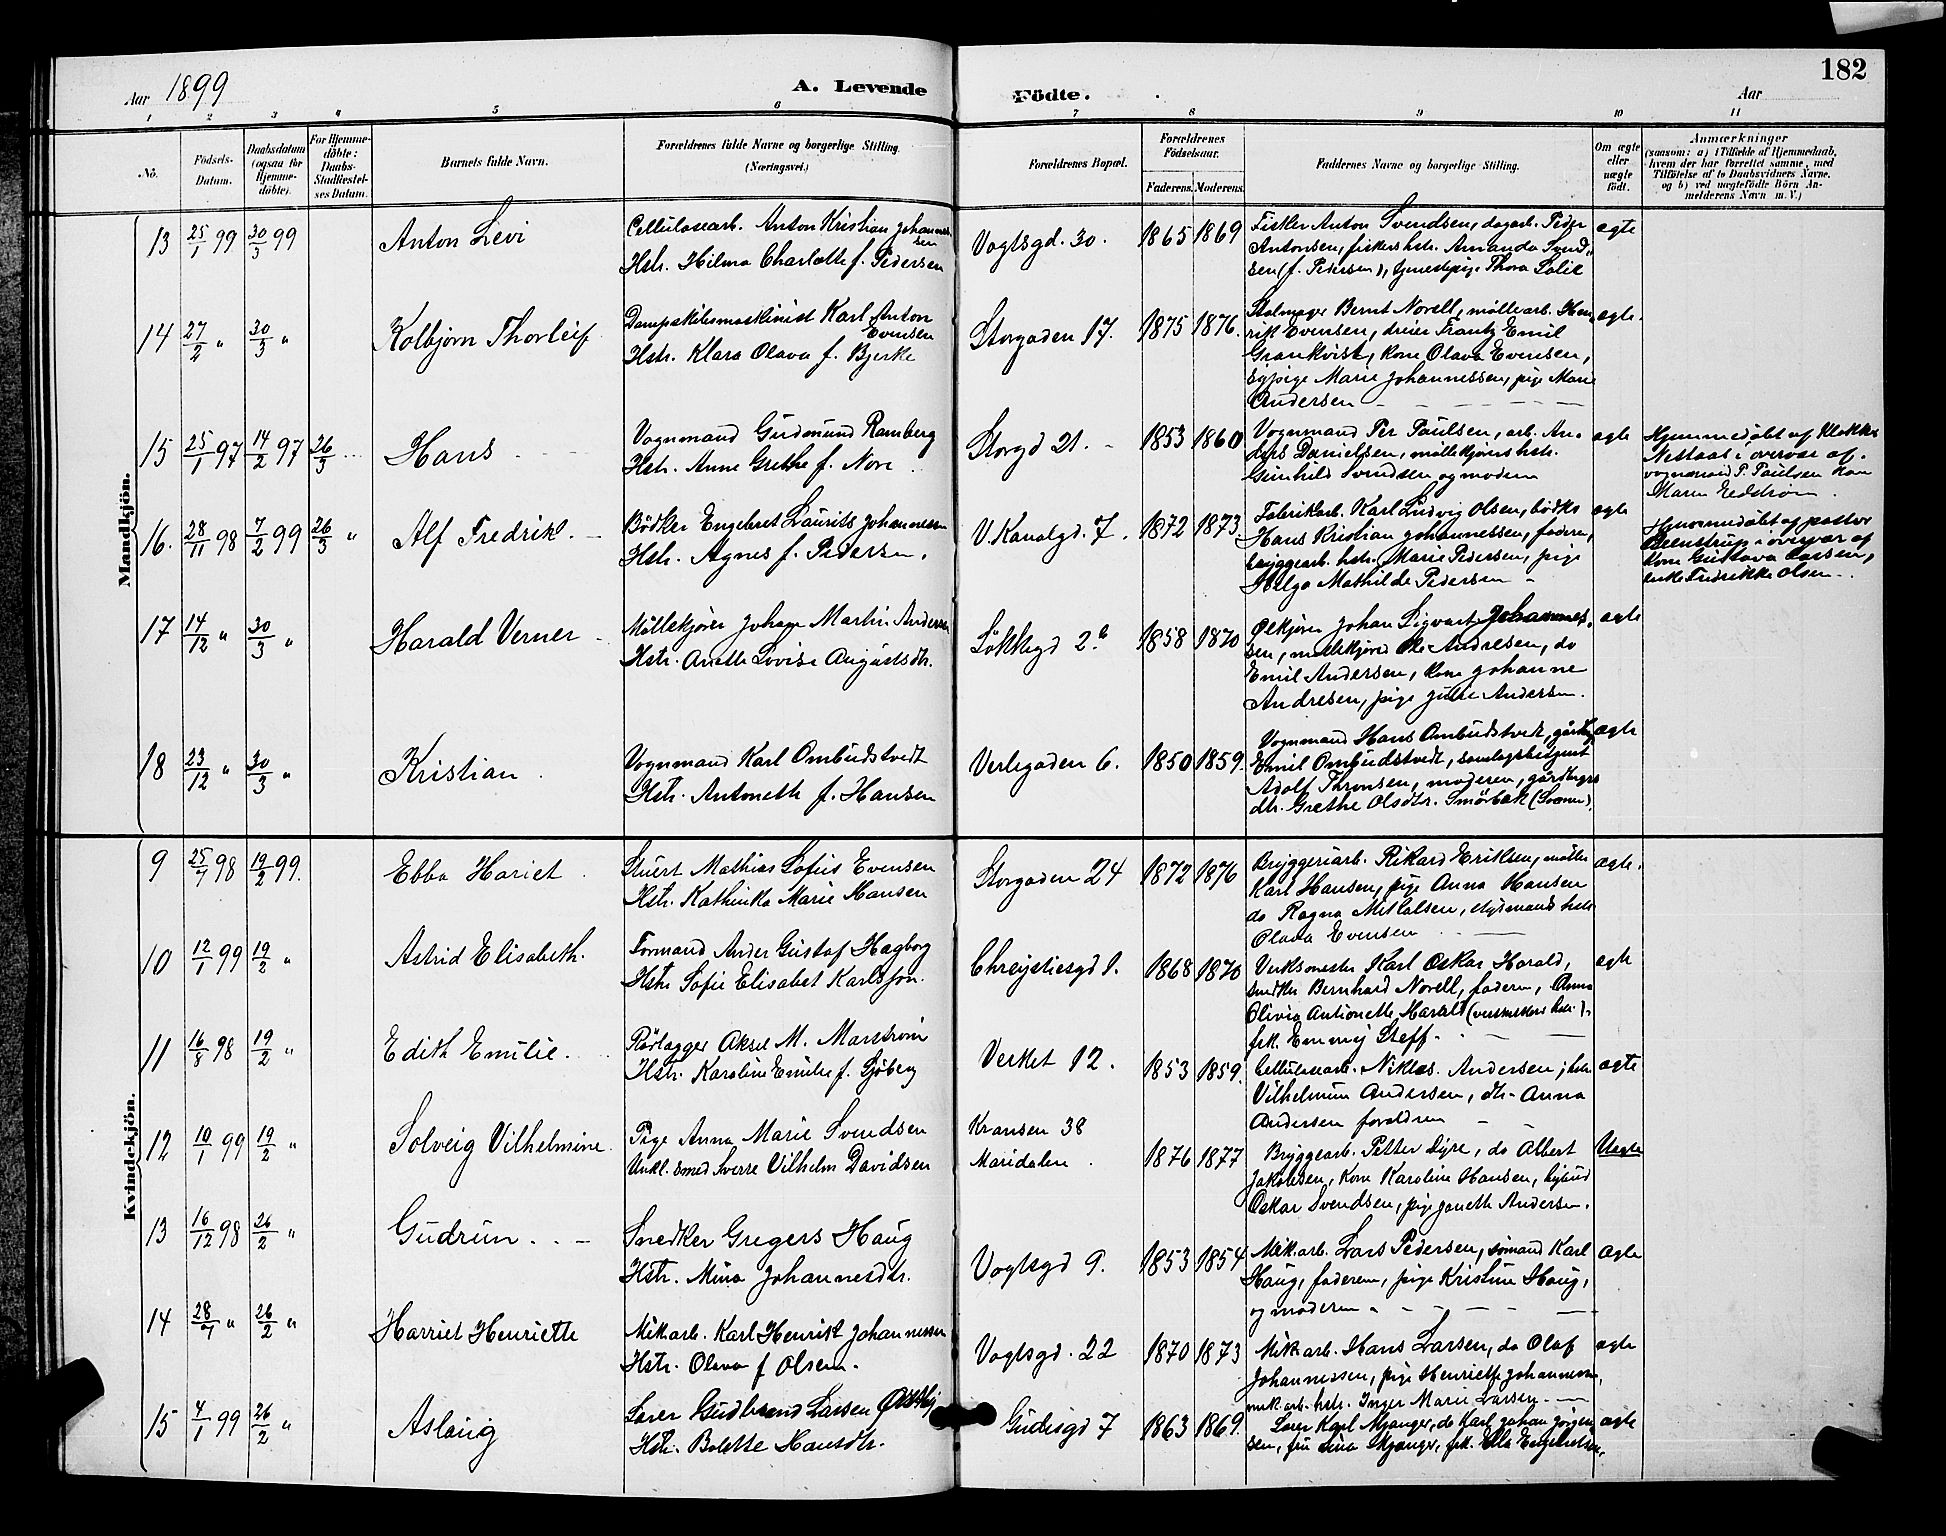 182
Aar 1899
A. Levende
Födte.
Aar
1 2 3 4 5 6 7 8 9 10 11
No.
Födsels-Datum.
Daabsdatum (ogsaa for Hjemme-döbte).
For Hjemme-döbte: Daabs-Stadfæstel-ses Datum.
Barnets fulde Navn.
Forældrenes fulde Navne og borgerlige Stilling.
(Næringsvei.)
Forældrenes Bopæl.
Forældrenes Födselsaar.
Faderens. Moderens.
Faddernes Navne og borgerlige Stilling.
Om ægte eller uægte födt.
Anmærkninger
(saasom: a) i Tilfælde af Hjemmedaab, hvem der har forrettet samme, med Tilföielse af to Daabsvidners Navne, og b) ved uægtefödte Börn An-melderens Navn m. V.)
Mandkjön.
13 25/1 99 30/3 99 Anton Levi
Cellulosearb. Anton Kristian Johannessen
Hstr. Hilma Charlotte f. Pedersen
Vogtsgd. 30. 1865 1869
Fisker Anton Svendsen, dagarb. Peder
Antonsen, fiskers hstr. Amanda Svend-
sen (f. Pedersen), tjenestepige Thora
ægte
14 27/2 " 30/3 " Kolbjørn Thorleif
Dampskibsmaskinist Karl Anton
Evensen
Hstr. Klara Olava f. Bjerke
Storgaden 17. 1875 1876.
Bernt Norell, møllearb. Hen-
rik Evensen, dreier Frantz Emil
Grankvist, kone Olava Evensen,
sypige Marie Johannessen, pige Marie
Andersen
ægte.
15 25/1 97 14/2 97 26/3 Hans
Vognmand Gudmund Ramberg
Hstr. Anne Grethe f. Nore
Storgd 21. 1853 1860
Vognmand Per Paulsen, arb. An-
ders Danielsen, møllekjørers hstr.
Gunhild Svendsen og modern
ægte
Hjemmedøbt af Klokker
Nestaas i overvær af
vognmand P. Paulsen kone
Maren
16. 28/11 98 7/2 99 26/3 " Alf Fredrik.
Bødker Engebret Laurits Johannessen
Hstr. Agnes f. Pedersen.
V. Kanalgd. 7. 1872 1873
Fabrikarb. Karl Ludvig Olsen, bødker
Hans Kristian Johannessen, faderen,
bryggearb. hstr. Marie Pedersen, pige
Helga Mathilde Pedersen
ægte
Hjemmedøbt af pastor
i overvær af
kone Gustava Larsen,
enke Fredrikke Olsen.
17 14/12 " 30/3 " Harald Verner
Møllekjører Johan Martin Andersen
Hstr. Anette Lovise Augustsdtr.
Løkkegd 2b 1858 1870
Ølkjører Johan Sigvart Johannes-
sen, møllekjører Ole Andresen, do
Emil Andersen, kone Johanne
Andresen, pige Julie Andersen.
ægte
18 23/12 " 30/3 " Kristian
Vognmand Karl Ombudstvedt
Hstr. Antoneth f. Hansen
Verlegaden 6. 1850 1859.
Vognmand Hans Ombudstvedt,
Emil Ombudstvedt,
Adolf Thronsen, moderen, gårdbrugers
dtr. Grethe Olsdtr. Smørbæk
ægte
Kvindekjön.
9 25/7 98 19/2 99. Ebba Hariet
Stuert Mathias Sofus Evensen
Hstr. Kathinka Marie Hansen
Storgaden 24 1872 1876
Bryggeriarb. Rikard Eriksen, møller
Karl Hansen, pige Anna Hansen
do Ragna Mikkelsen, styrmands hstr.
Olava Evensen
ægte.
10 12/1 99 19/2 " Astrid Elisabeth.
Formand Ander Gustaf Hagborg
Hstr Sofie Elisabet Karlsson.
Chrystiesgd 1. 1868 1870
Verksmester Karl Oskar Harald,
snedker Bernhard Norell, faderen, Anna
Olivia Antionette Harald (verksmesters hstr.),
frk. Emmy Steff.
ægte
11 16/8 98 19/2 " Edith Emilie.
Rørlægger Aksel M. Marstrøm
Hstr. Karoline Emilie f. Sjøberg
Verket 12. 1853 1859.
Cellulosearb. Niklas Andersen, hstr
Vilhelmine Andersen, dtr. Anna
Andersen forældrene
ægte
12 10/1 99 19/2 " Solveig Vilhelmine
Pige Anna Marie Svendsen
Unkl. smed Sverre Vilhelm Davidsen
Kransen 38
Maridalen. 1876 1877
Bryggearb. Petter Dyre, do Albert
Jakobsen, kone Karoline Hansen, bybud
Oskar Svendsen, pige Janette Andersen.
Uægte
13 16/12 98 26/2 " Gudrun
Snedker Gregers Haug
Hstr. Mina Johannesdtr.
Vogtsgd 9. 1853 1854
Mek.arb. Lars Pedersen, sømand Karl
Haug, faderen, pige Kristine Haug,
og moderen
ægte
14 28/7 " 26/2 " Harriet Henriette
Mek.arb. Karl Henrik Johannessen
Hstr. Olava f Olsen.
Vogtsgd. 22 1870 1873
Mek arb. Hans Larsen, do Olaf
Johannessen, pige Henriette Johannessen,
mek.arb. hstr. Inger Marie Larsen.
ægte
15 4/1 99 26/2 " Aslaug
Lærer Gudbrand Larsen Østby
Hstr. Bolette Hansdtr.
Gudesgd 7 1863 1869.
Lærer Karl Mjanger, do Karl Johan Jørgen-
sen, fru Lina Mjanger, frk. Ella Engebretsen,
ægte